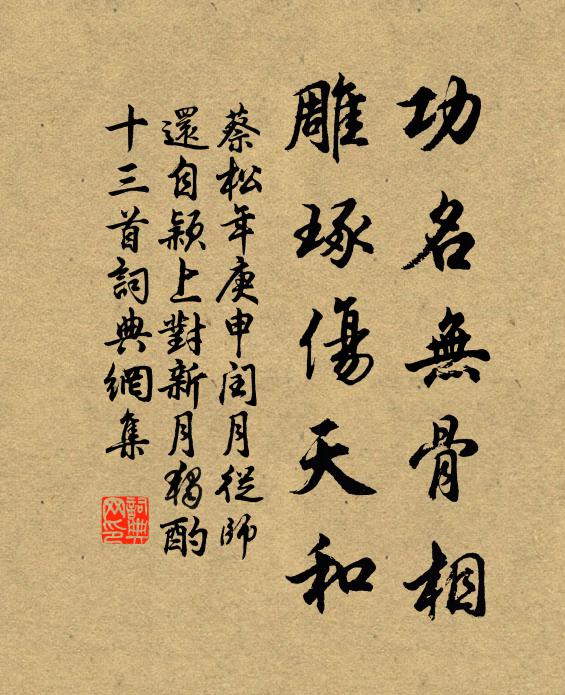 功名無骨相
雕琢傷天和
蔡松年庚申閏月從師
還自潁上對新月獨酌
十三首詞典網集
詞典网印